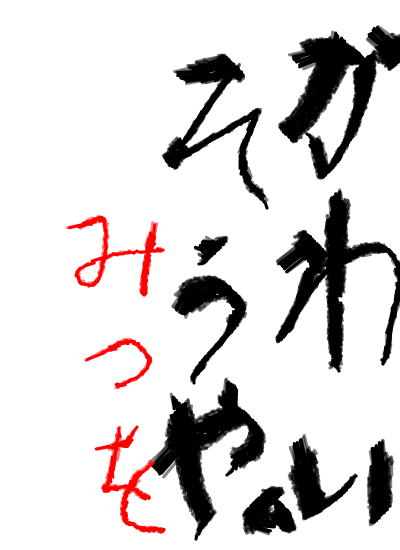 かわい
そうや
みつを